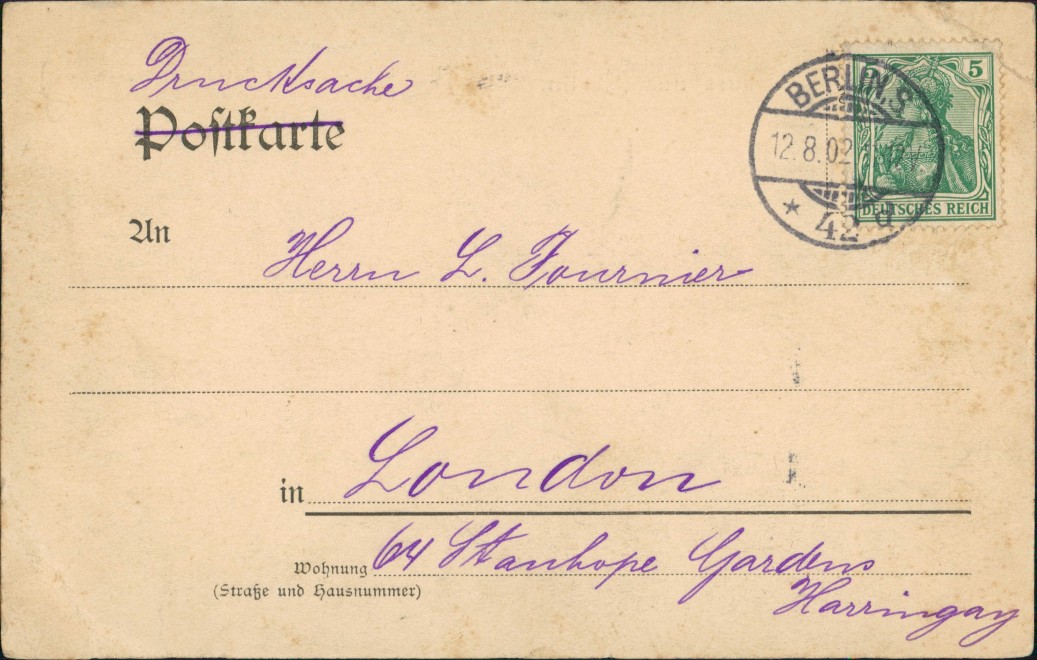 Drucksache
Postkarte
BERLIN.S.
12.8.02
* 42 d
5
DEUTSCHES REICH
An
Herrn L. Fournier
in London
Wohnung 64 Stanhope Gardens
(Straße und Hausnummer)
Harringay